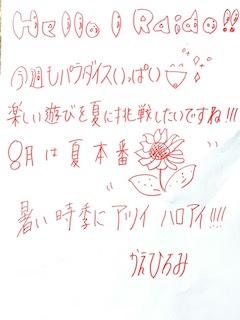 Hello! Raido!!
今週もパラダイスいっぱい
楽しい遊びを夏に挑戦したいですね!!!
8月は夏本番
暑い時季にアツイ ハロアイ!!!!
かえひろみ